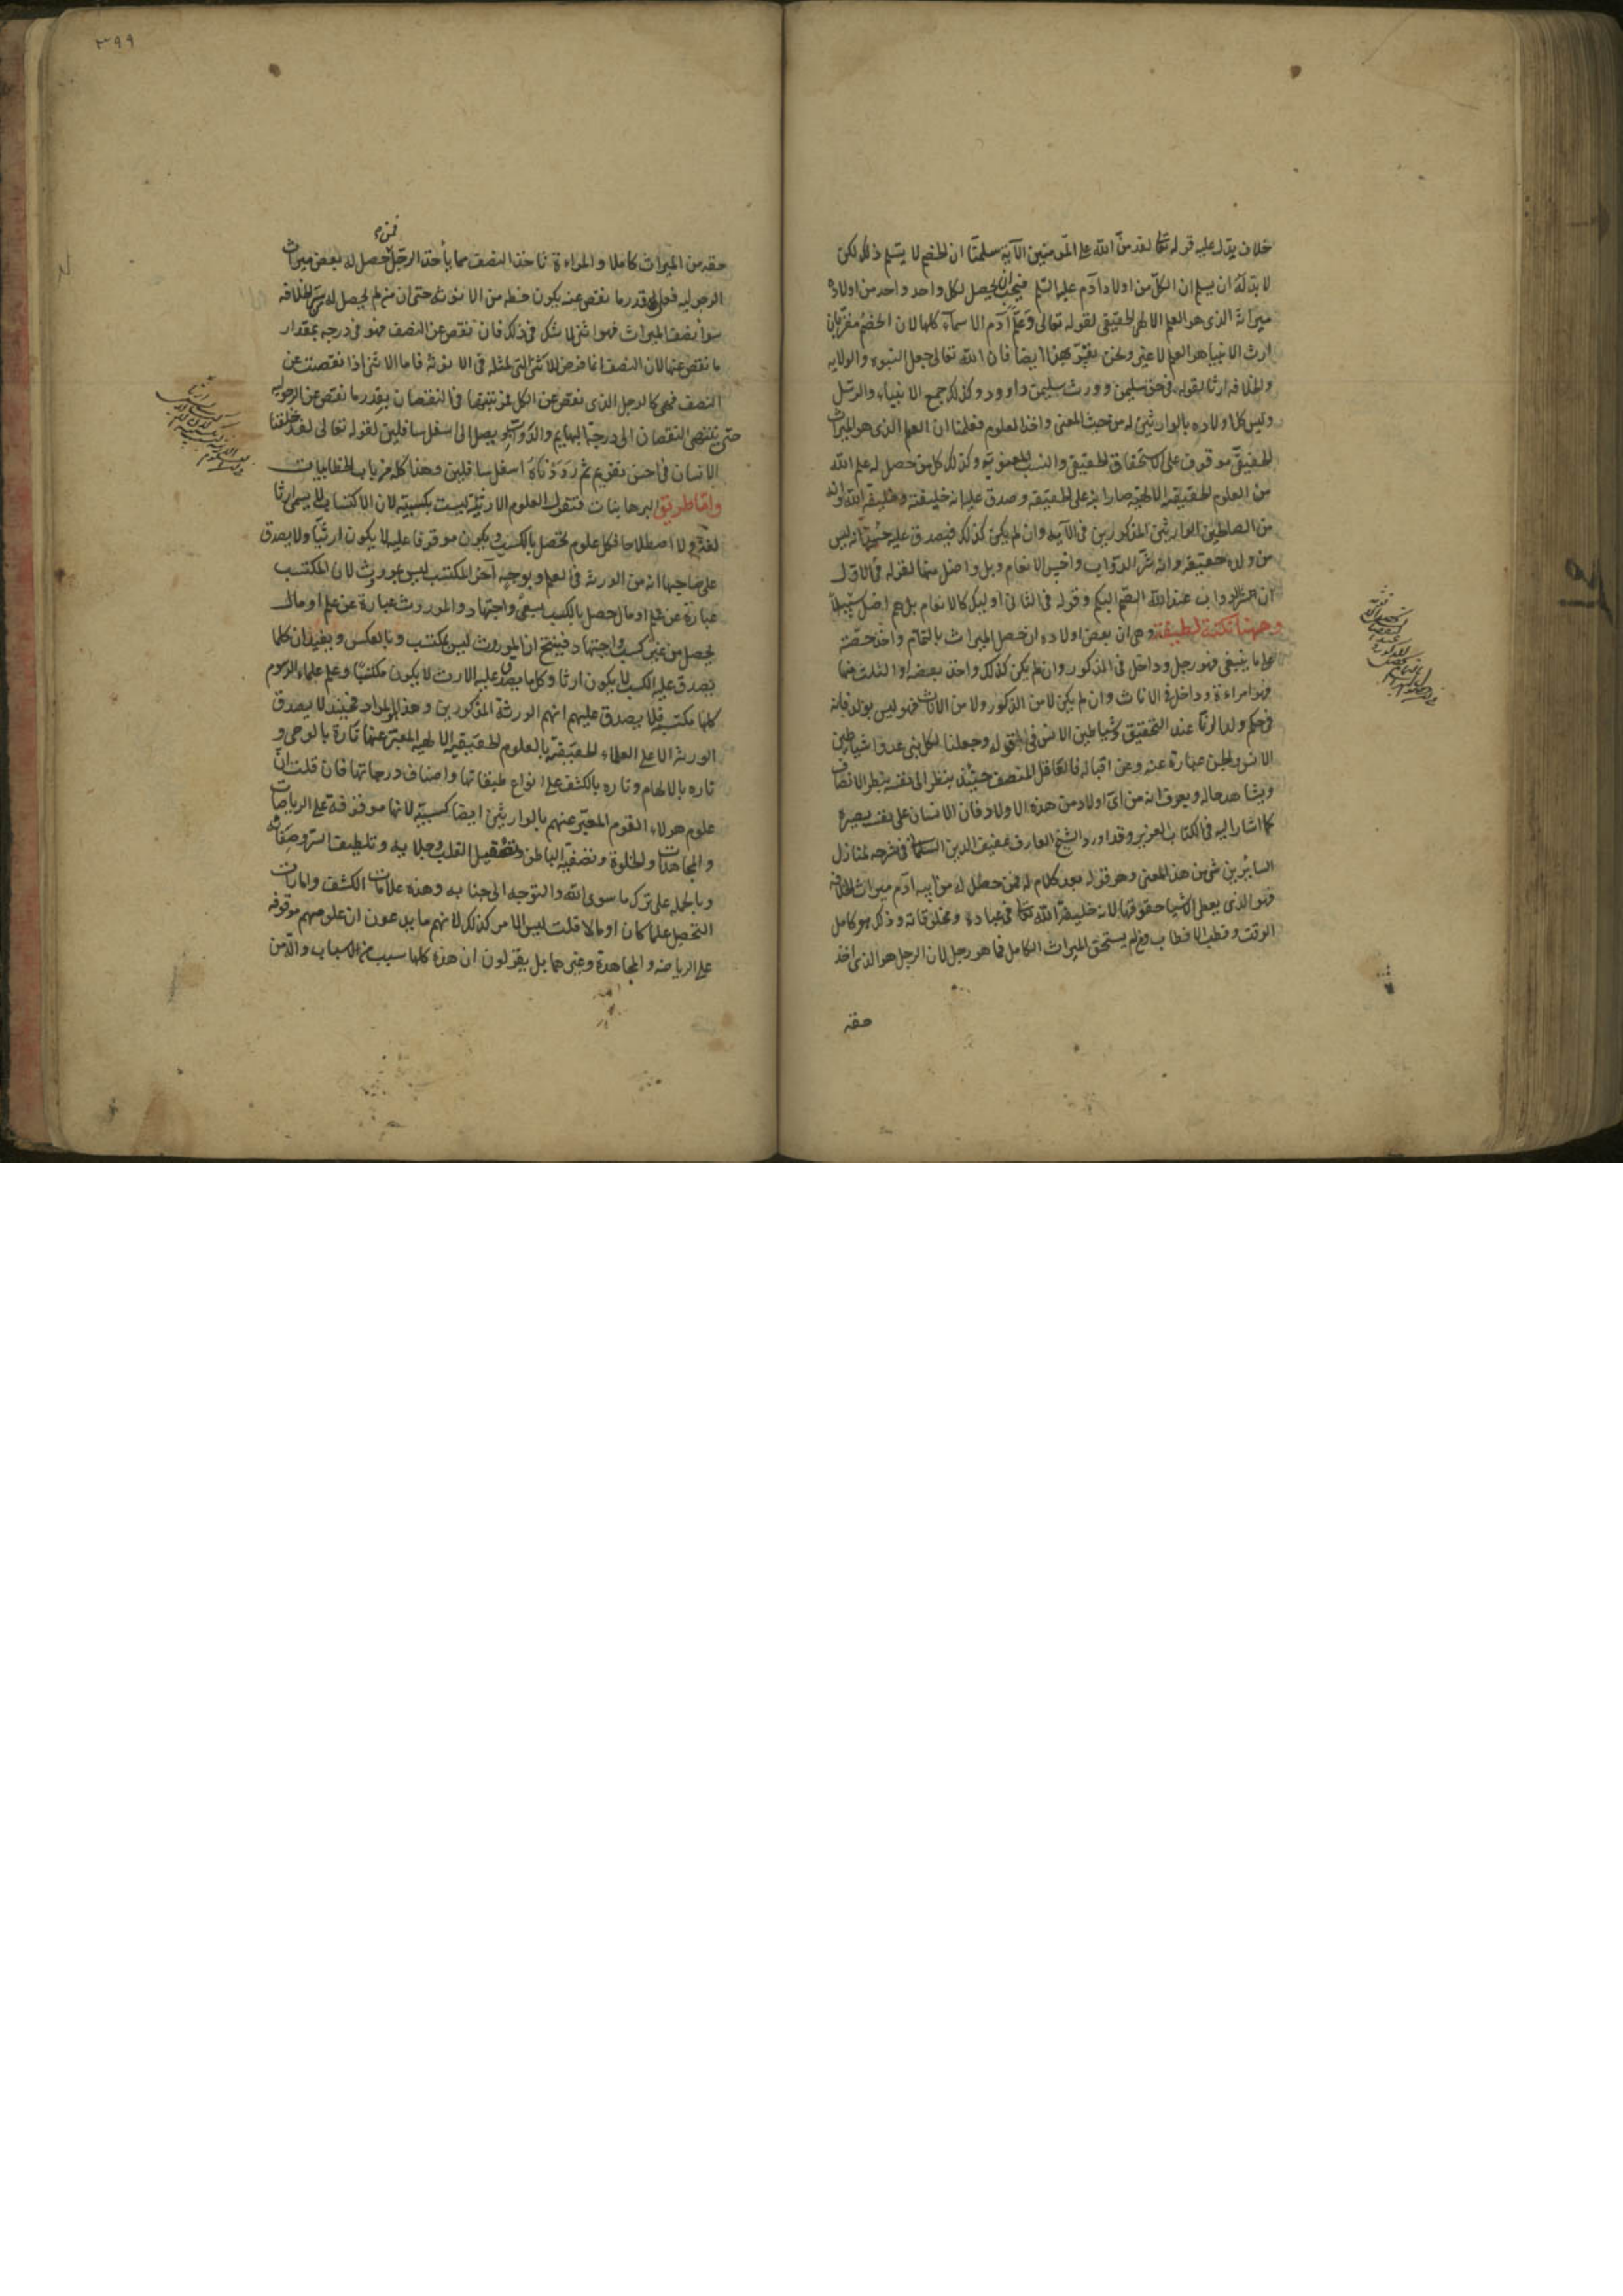 خلاف يدل عليه قوله تعالى لقد منّ الله على المؤمنين الآية سلمنا ان الخصم لا يسلم ذلك لكن
لا بد له ان يسلم ان الكل من اولاد آدم عليه السلم فيجب ان يحصل لكل واحد واحد من اولاده
ميراثه الذى هو العلم الالهى الحقيقى لقوله تعالى وَعَلَّم آدم الاسمآء كلها لان الخصم مقرّ بان
ارث الانبيا هو العلم لا غير ونحن نقرّ بهذا ايضا فان الله تعالى جعل النبوه والولايه
والخلافه ارثا لقوله فى حق سليمن وورث سليمن داوود وكذلك جميع الانبياء والرسل
وليس كل اولاده بالوارثين له من حيث المعنى واخذ العلوم فعلمنا ان العلم الذى هو الميراث
الحقيقى موقوف على الاستحقاق الحقيقى والنسب المعنويه وكذلك كل من حصل له علم الله
من العلوم الحقيقيه الالهيّه صار ابنه على الحقيقه وصدق عليه انه خليفته وخليفة الله وانه
من المصطفين الوارثين المذكورين فى الآيه وان لم يكن كذلك فيصدق عليه انه ليس
من ولده حقيقه وانه شرّ الدوّاب واخس الانعام وبل واضل منها لقوله فى الاول
ان شرّ الدواب عند الله الصّم البكم وقوله فى الثانى اوليك كالانعام بل هم اضل سبيلاً
وههنا نكتة لطيفة وهى ان بعض اولاده ان حصل الميراث بالتمام واخذ حصّته
على ما ينبغى فهو رجل وداخل فى الذكور وان لم يكن كذلك واخذ بعضه او الثلث منها
فهو امراءة وداخل فى الاناث وان لم يكن لا من الذكور ولا من الاناث فهو ليس بولد فانه
فى حكم ولد الزنا عند التحقيق وشياطين الانس فى قوله وجعلنا لكل نبى عدوا شياطين
الانس والجن عبارة عنه وعن اقباله فالعاقل المنصف حينئذ ينظر الى نفسه بنظر الانصاف
ويشاهد حاله ويعرف انه من اىّ اولاد من هذه الاولاد فان الانسان على نفسه بصيرة
كما اشار اليه فى الكتاب العزيز وقد اورد الشيخ العارف عفيف الدين التلمسانى فى شرحه لمنازل
السايرين شئ من هذا المعنى وهو قوله بعد كلام له فمن حصل له من ابيه آدم ميراث الخلافه
فهو الذى يعطى الاشيا حقوقها لانه خليفة الله تعالى فى عباده ومخلوقاته وذلك هو كامل
الوقت وقطب الاقطاب ومن لم يستحق الميراث الكامل فما هو رجل لان الرجل هو الذى اخذ
حقه
٣٩٩
حقه من الميراث كاملا والمراءة تاخذ النصف مما يأخذ الرجل فمن حصل له بعض ميراث
الرجوليه فعلى قدر ما نقص عنه يكون حظه من الانوثه حتى ان من لم يحصل له من الخلافه
سوا نصف الميراث فهو انثى لا شك فى ذلك فان نقص عن النصف فهو فى درجه بمقدار
ما نقص عنها لان النصف انما فرض للانثى التى لمثله فى الانوثه فاما الانثى اذا نقصت عن
النصف فهى كالرجل الذى نقص عن الكل فى النقصان بقدر ما نقص عن الرجوليه
حتى ينتهى النقصان الى درجة البهايم والدوّاب بل يصل الى اسفل سافلين لقوله تعالى لقد خلقنا
الانسان فى احسن تقويم ثم رَدَدْنَاهُ اسفل سافلين وهذا كله من باب الخطابيات
وامّا طريق البرهانيات فنقول العلوم الارثيّة ليست بكسبيّه لان الاكتساب لا يسمى ارثا
لغة ولا اصطلاحا فكل علوم تحصل بالكسب ويكون موقوفا عليه لا يكون ارثيّا ولا يصدق
على صاحبها انه من الورثه فى العلم وبوجه آخر المكتسب ليس بموروث لان المكتسب
عبارة عن علم او مال حصل بالكسب بسعى واجتهاد والموروث عبارة عن علم او مال
يحصل من غير كسب واجتهاد فينتج ان الموروث ليس بمكتسب وبالعكس ويفيد ان كلما
يصدق عليه الكسب لا يكون ارثا وكل ما يصدق عليه الارث لا يكون مكتسبا وعلم علماء الرسوم
كلها مكتسبه فلا يصدق عليهم انهم الورثة المذكورين وهذا هو المراد فحينئذ لا يصدق
الورثه الا على العلماء الحقيقيّة بالعلوم الحقيقيه الالهيه المعبّر عنها تارة بالوحى و
تاره بالالهام وتاره بالكشف على انواع طبقاتها واصناف درجاتها فان قلت انّ
علوم هولاء القوم المعبّر عنهم بالوارثين ايضا كسبيّه لانها موقوفة على الرياضات
والمجاهدات والخلوة وتصفيه الباطن وتصقيل القلب وجلايه وتلطيف السرّ وصفائه
وبالجمله على ترك ما سوى الله والتوجه الى جنابه وهذه علامات الكشف وامارات
التحصيل علما كان او مالا قلت ليس الامر كذلك لانهم ما يدعون ان علومهم موقوفه
على الرياضه والمجاهدة وغيرهما بل يقولون ان هذه كلها سبب من الاسباب والّا من